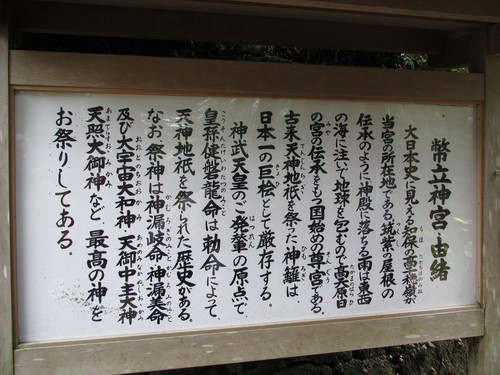 幣立神宮由緒
大日本史に見える知保の高千穂嶺が
当宮の所在地である。筑紫の屋根の
伝承のように神殿に落ちる雨は東西
の海に注いで地球を包むので、高天原・日
の宮の伝承をもつ国始めの尊宮である。
古来天神地祇を祭った神籬は、
日本一の巨桧として厳存する。
神武天皇のご発輦の原点で、
皇孫健磐龍命は勅命によって、
天神地祇を祭られた歴史がある。
なお祭神は神漏岐命・神漏美命
及び大宇宙大和神・天御中主大神
天照大御神など、最高の神を
お祭りしてある。